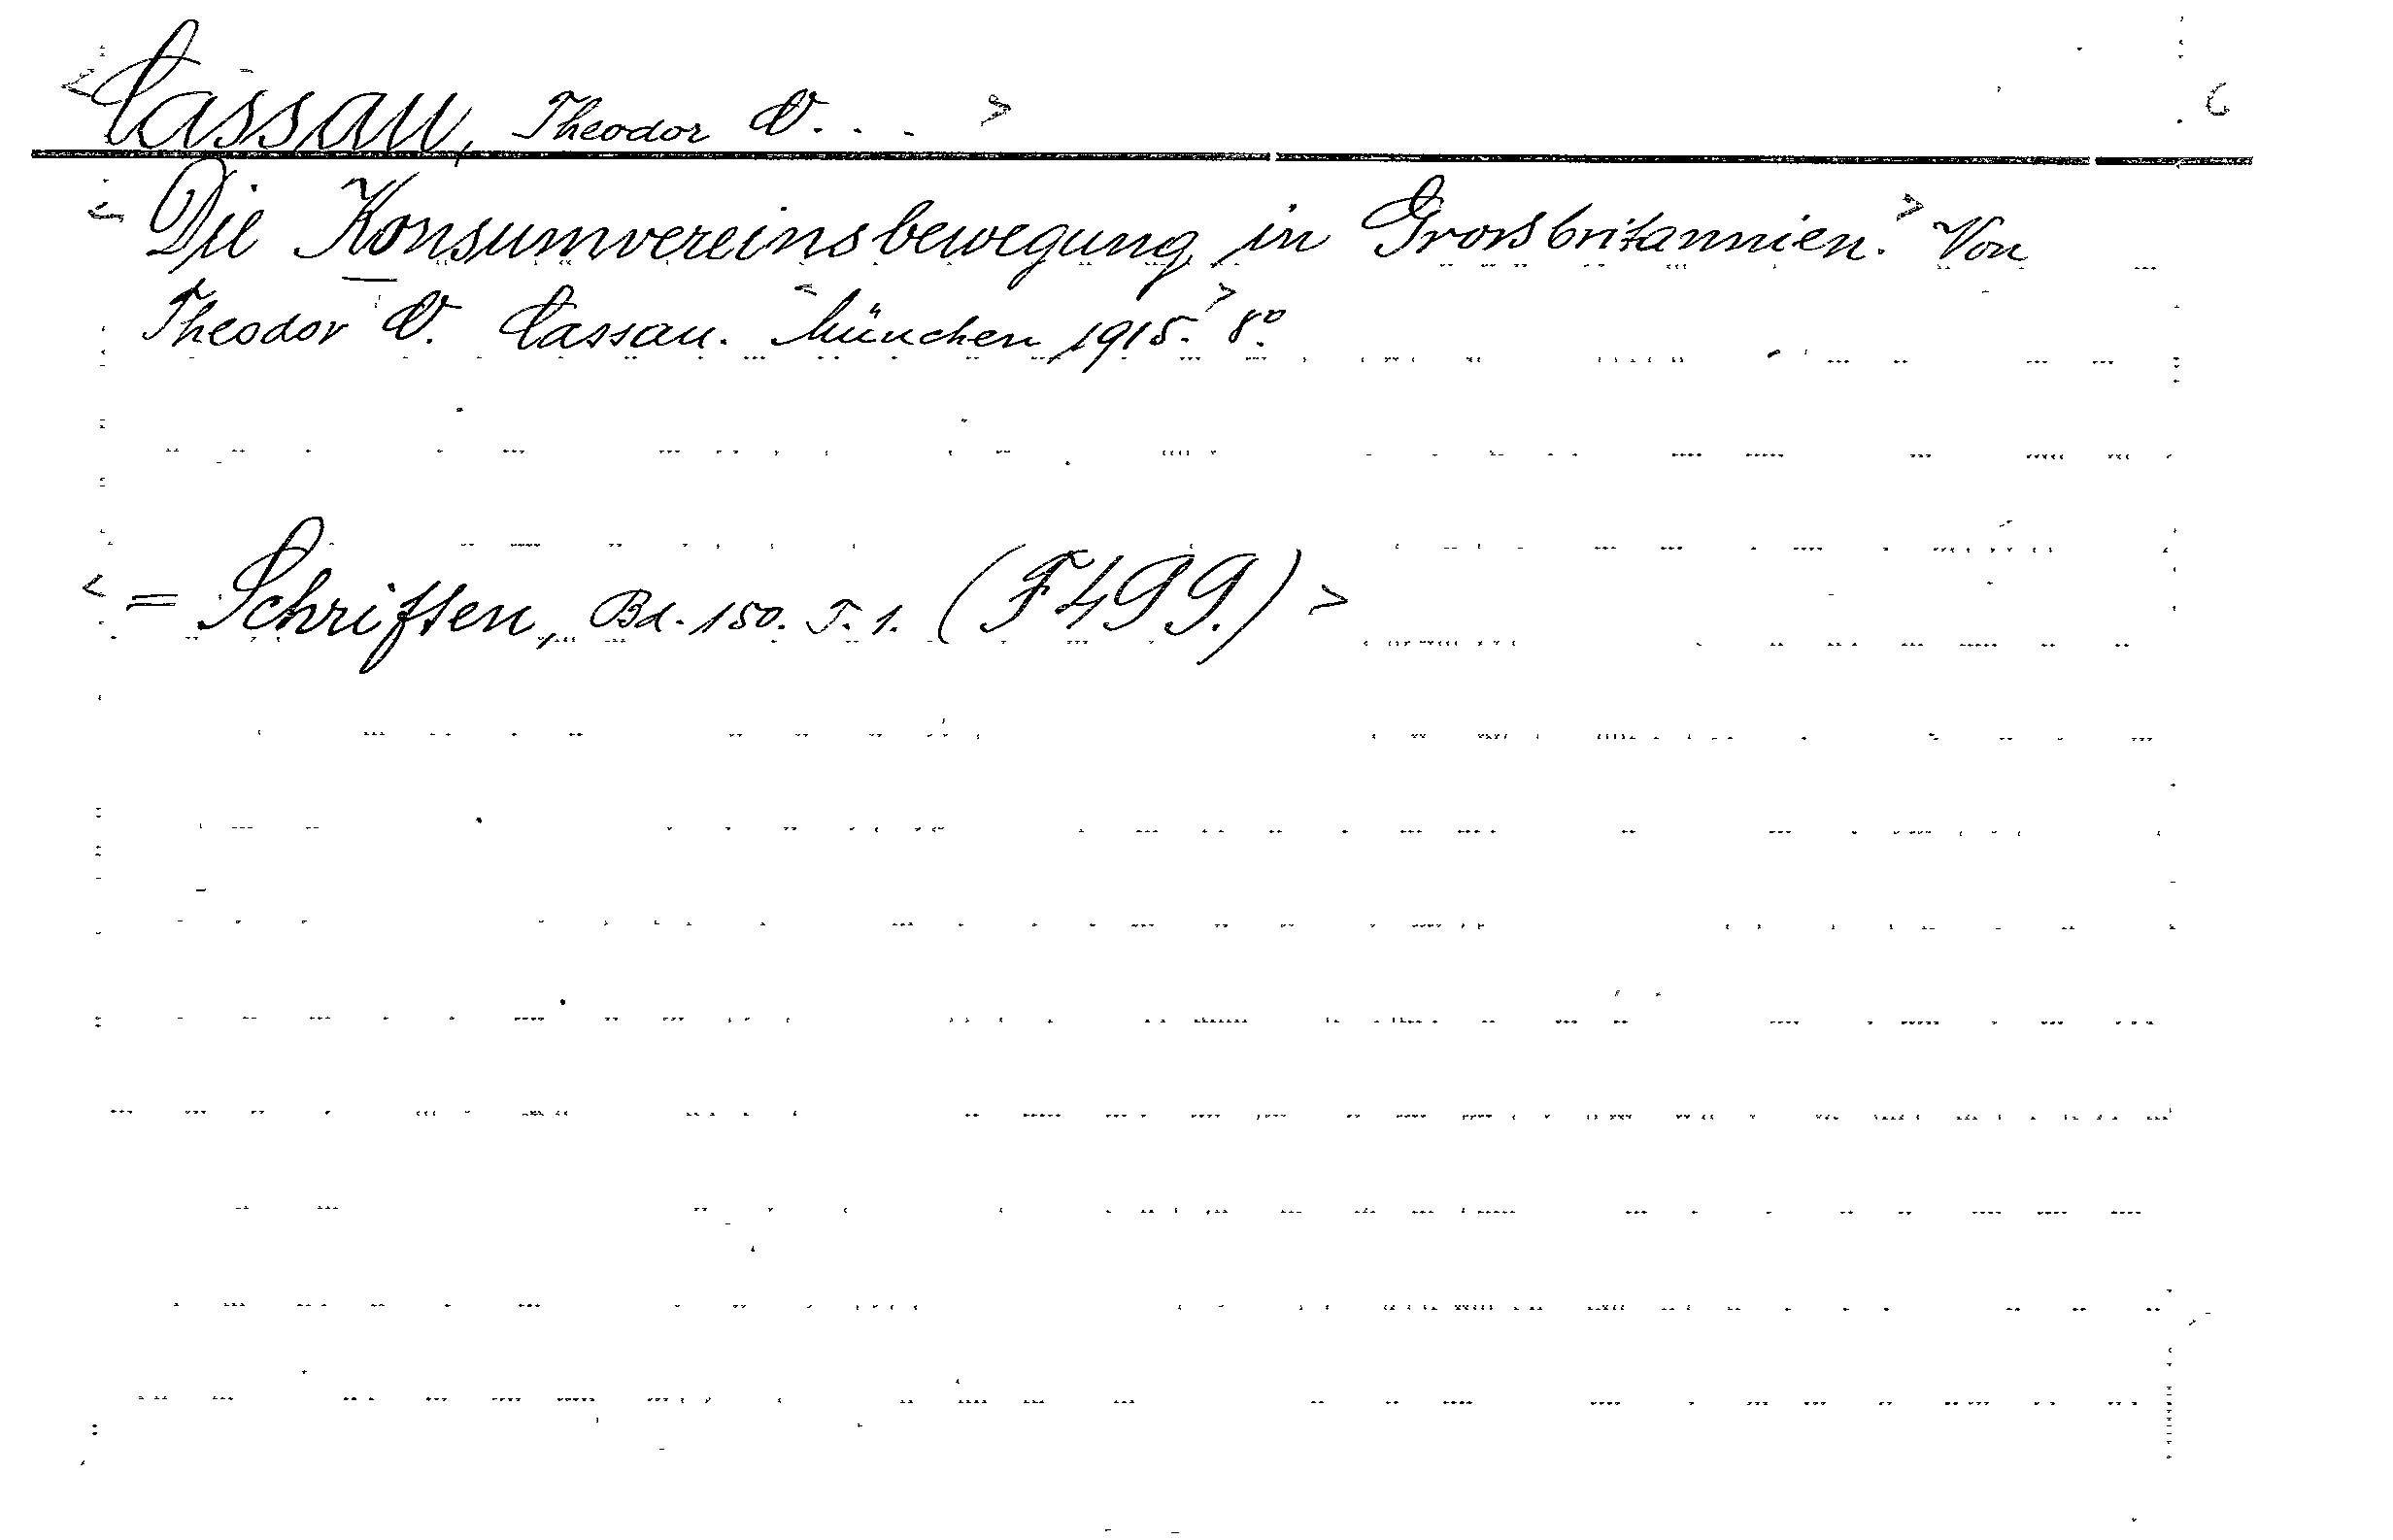 <Cassau, Theodor O. . . > 6
<Die Konsumvereinsbewegung in Grossbritannien.> Von
Theodor O. Cassau. <München 1915.> 8°.
< = Schriften, Bd. 150. T. 1. (F499.) >